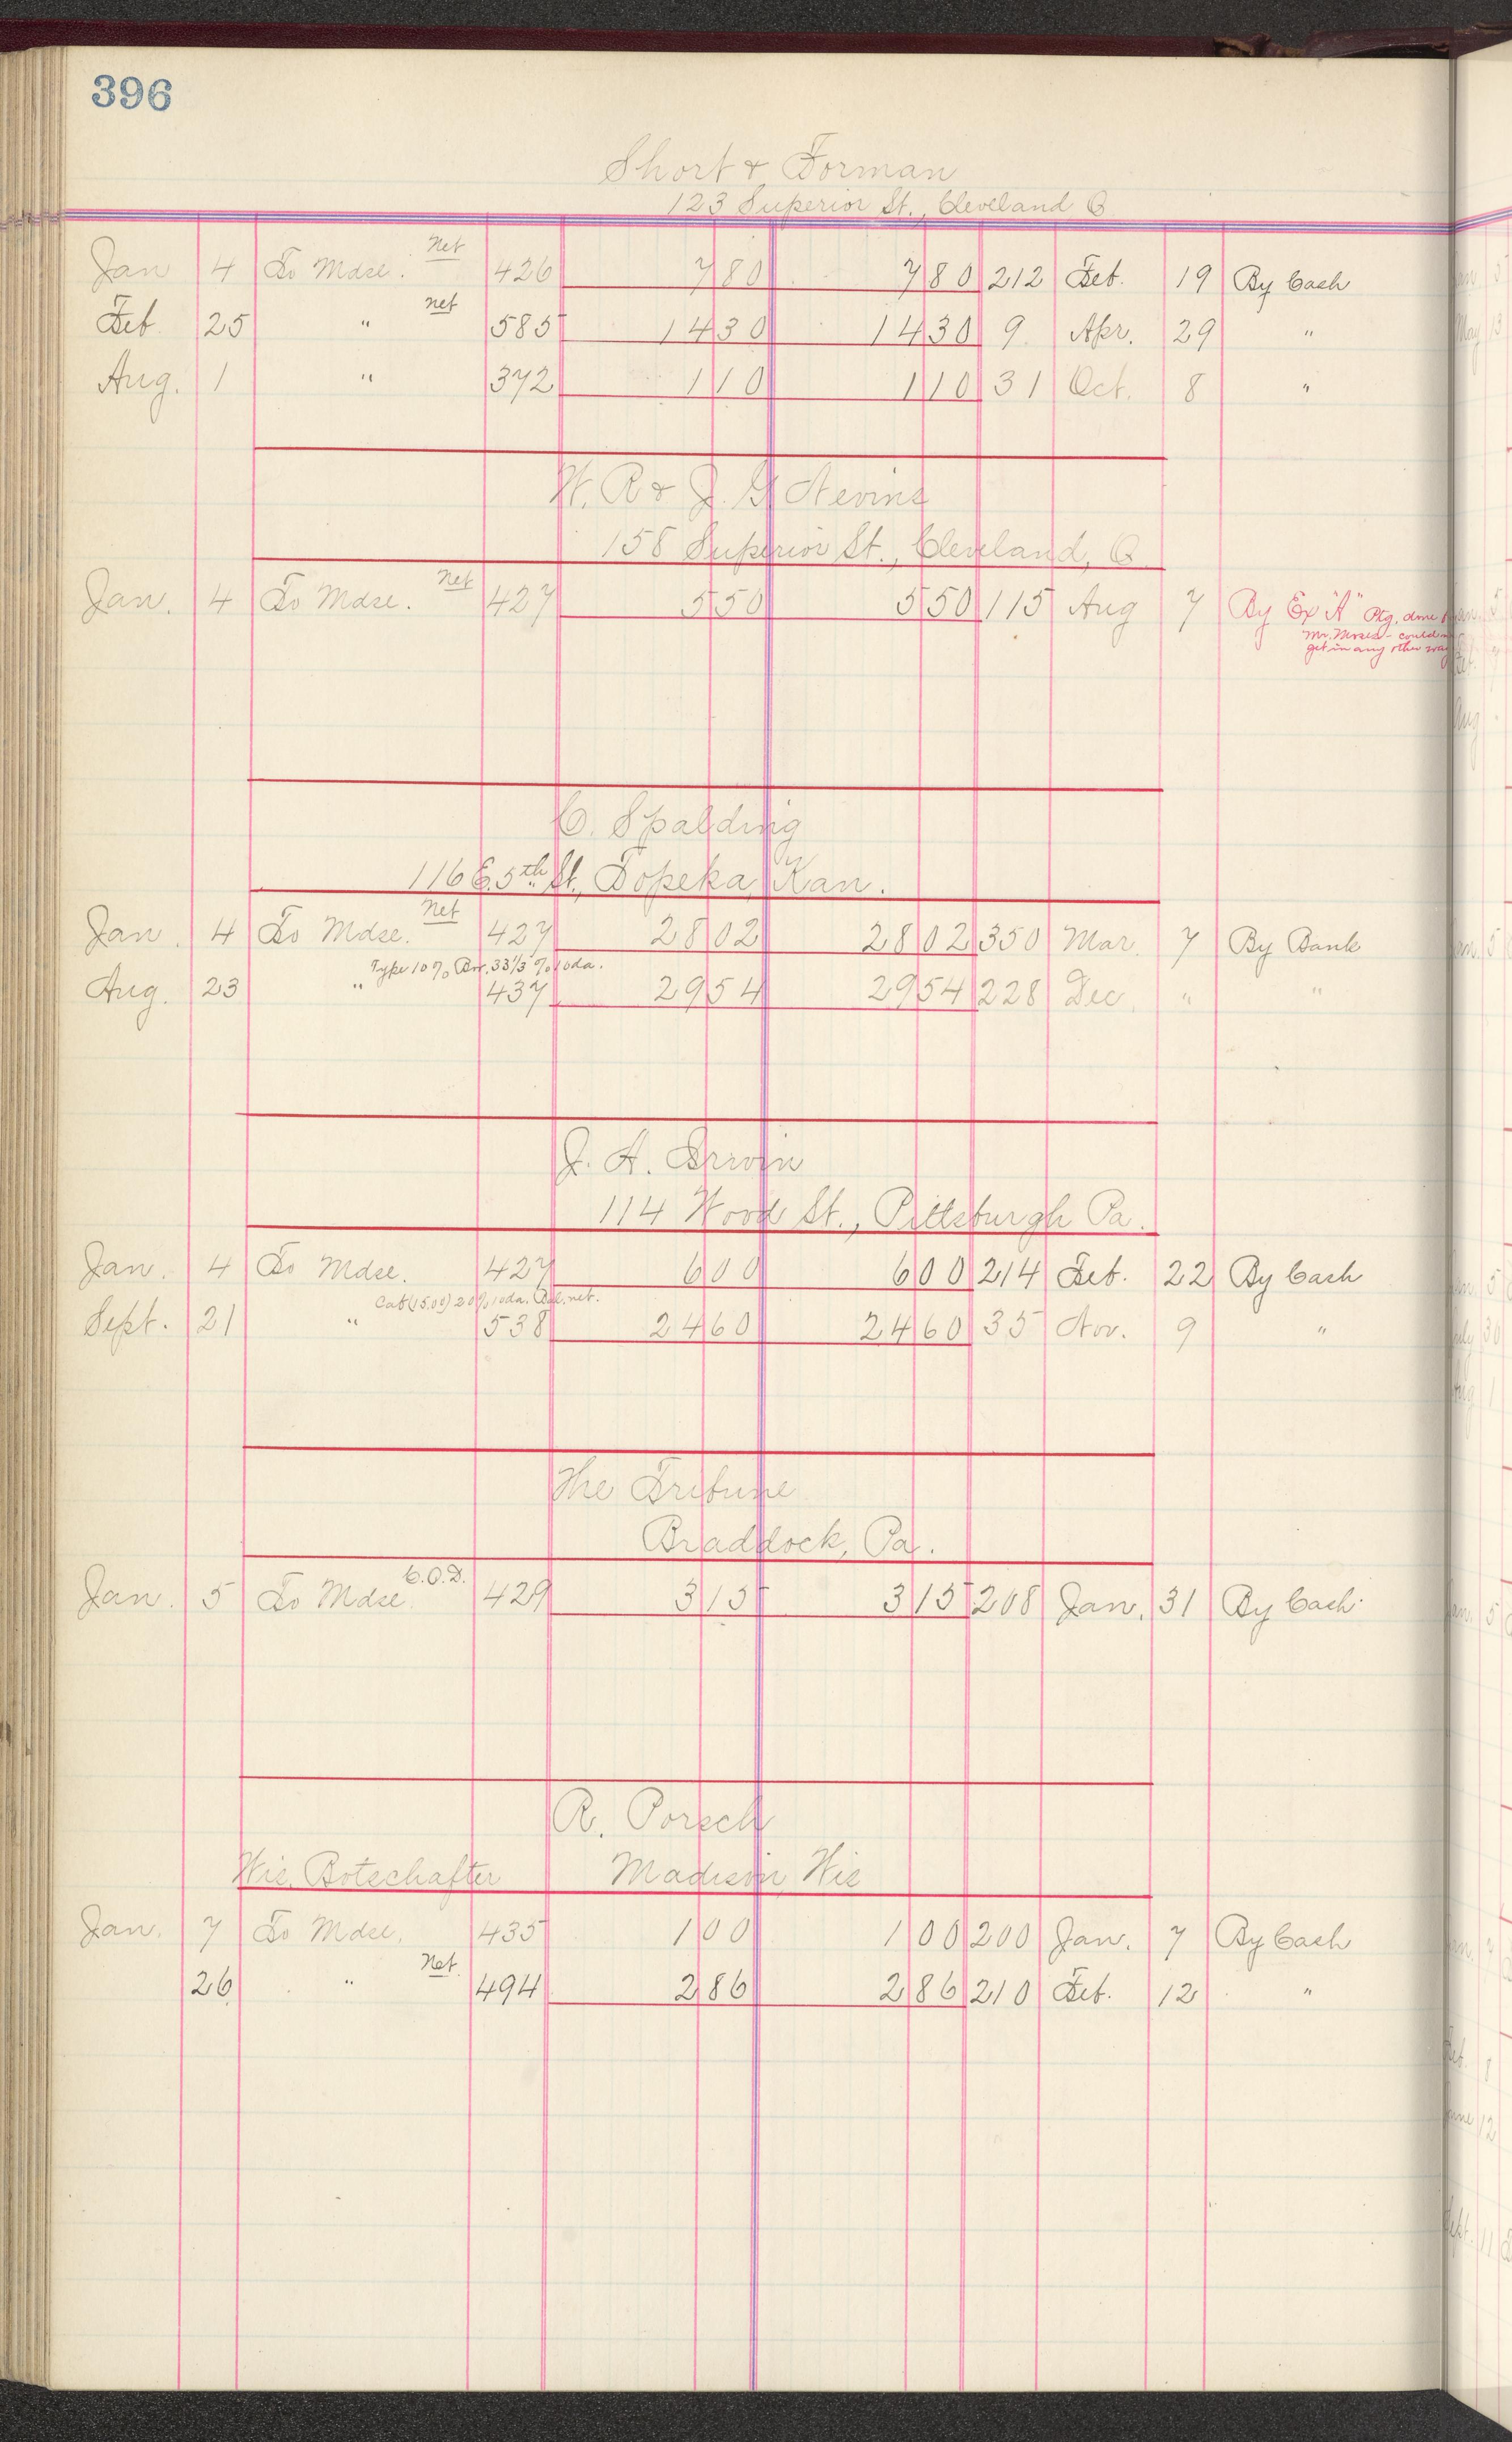 396
Short & Forman
123 Superior St., Cleveland O
Jan 4 To Mdse. Net 426 7 80 7 80 212 Feb. 19 By Cash
Feb. 25 " net 585 14 30 14 30 9 Apr. 29 "
Aug. 1 " 372 1 10 1 10 31 Oct. 8 "
W. R & J. G Nevins
158 Superior St., Cleveland, O
Jan. 4 To Mdse. Net 427 5 50 5 50 115 Aug 7 By Ex "A" Ptg. done
Mr. Moses - could
get in any other way
C. Spalding
116 E. 5th St., Topeka, Kan.
Jan. 4 To Mdse. Net 427 28 02 28 02 350 Mar. 7 By Bank
Type 10% Bor. 33 1/3 % 10 da.
Aug. 23 " 437 29 54 29 54 228 Dec. " "
J. H. Irwin
114 Wood St., Pittsburgh Pa.
Jan. 4 To Mdse. 427 6 00 6 00 214 Feb. 22 By Cash
Cab (15.00) 20% 10 da. Bal. net.
Sept. 21 " 538 24 60 24 60 35 Nov. 9 "
The Tribune
Braddock, Pa.
Jan. 5 To Mdse. C.O.D. 429 3 15 3 15 208 Jan. 31 By Cash
R. Porsch
Wis. Botschafter Madison, Wis
Jan. 7 To Mdse. 435 1 00 1 00 200 Jan. 7 By Cash
26 " Net. 494 2 86 2 86 210 Feb. 12 "